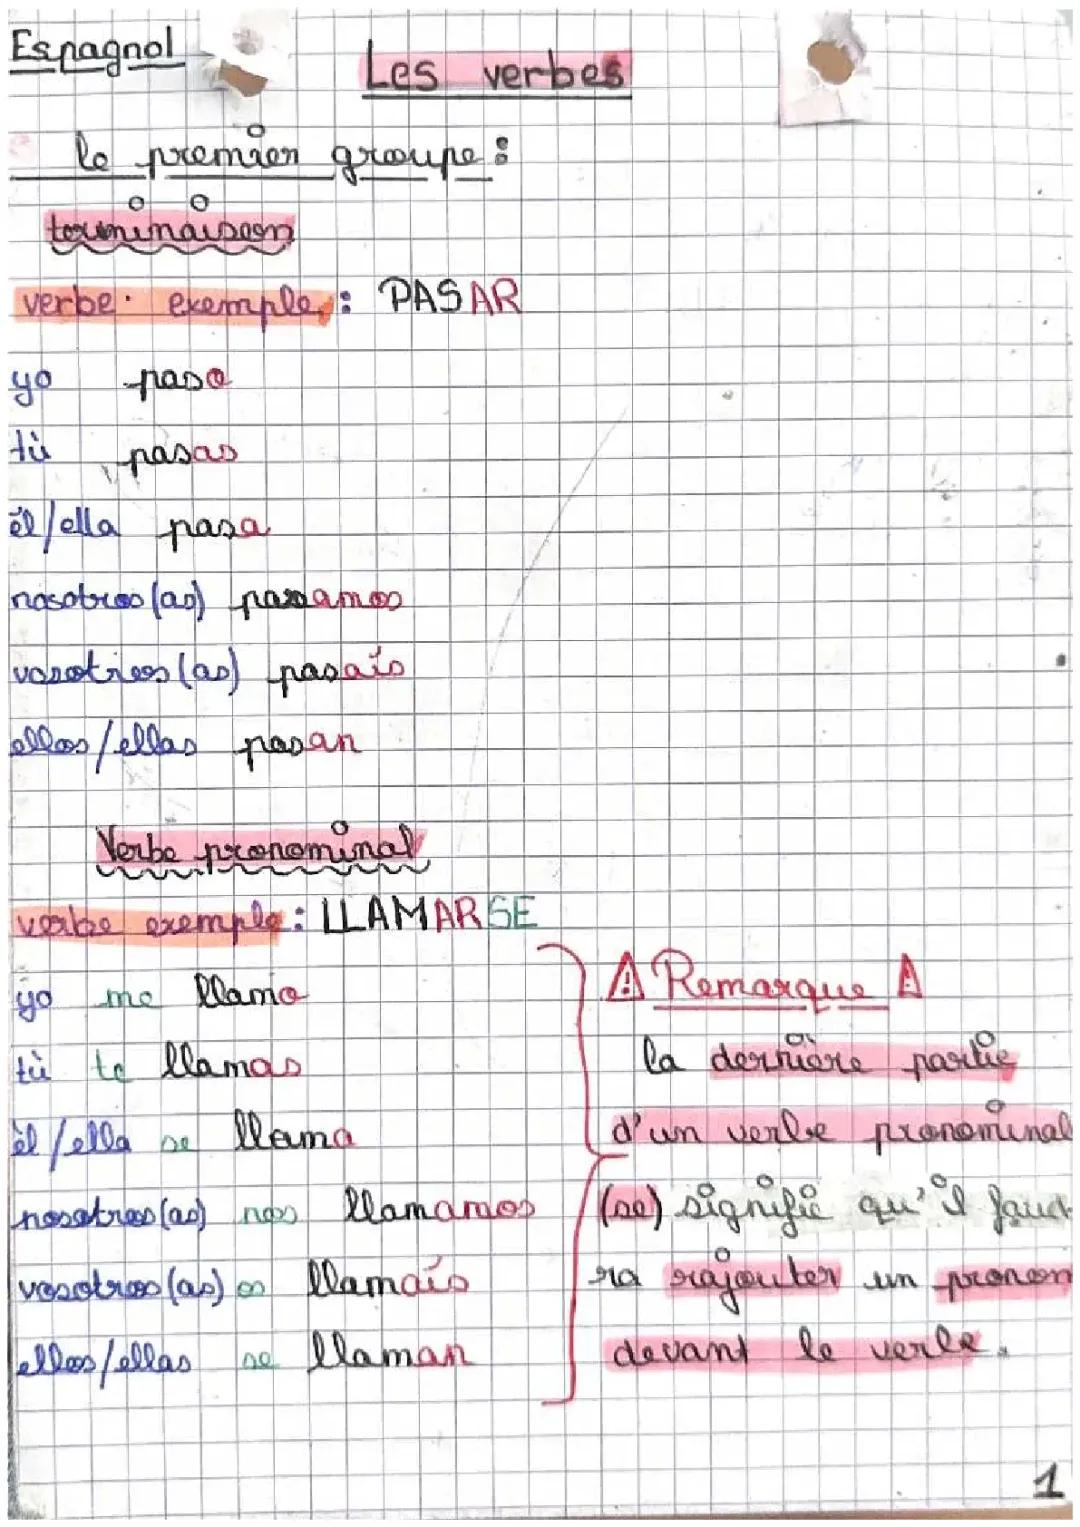 Espagnol
Les verbes
le premier groupe :
terminaison
verbe exemple : PASAR
yo paso
tù pasas
él/ella pasa
nosotros (as) pasamos
vosotros (as) pasaís
ellos/ellas pasan
Verbe pronominal
verbe exemple : LLAMARSE
yo me llamo
tù te llamas
èl/ella se llama
nosotros (as) nos llamamos
vosotros (as) os llamaís
ellos/ellas se llaman
⚠ Remarque ⚠
la dernière partie
d'un verbe pronominal
(se) signifie qu'il faud
ra rajouter un pronom
devant le verbe.
1